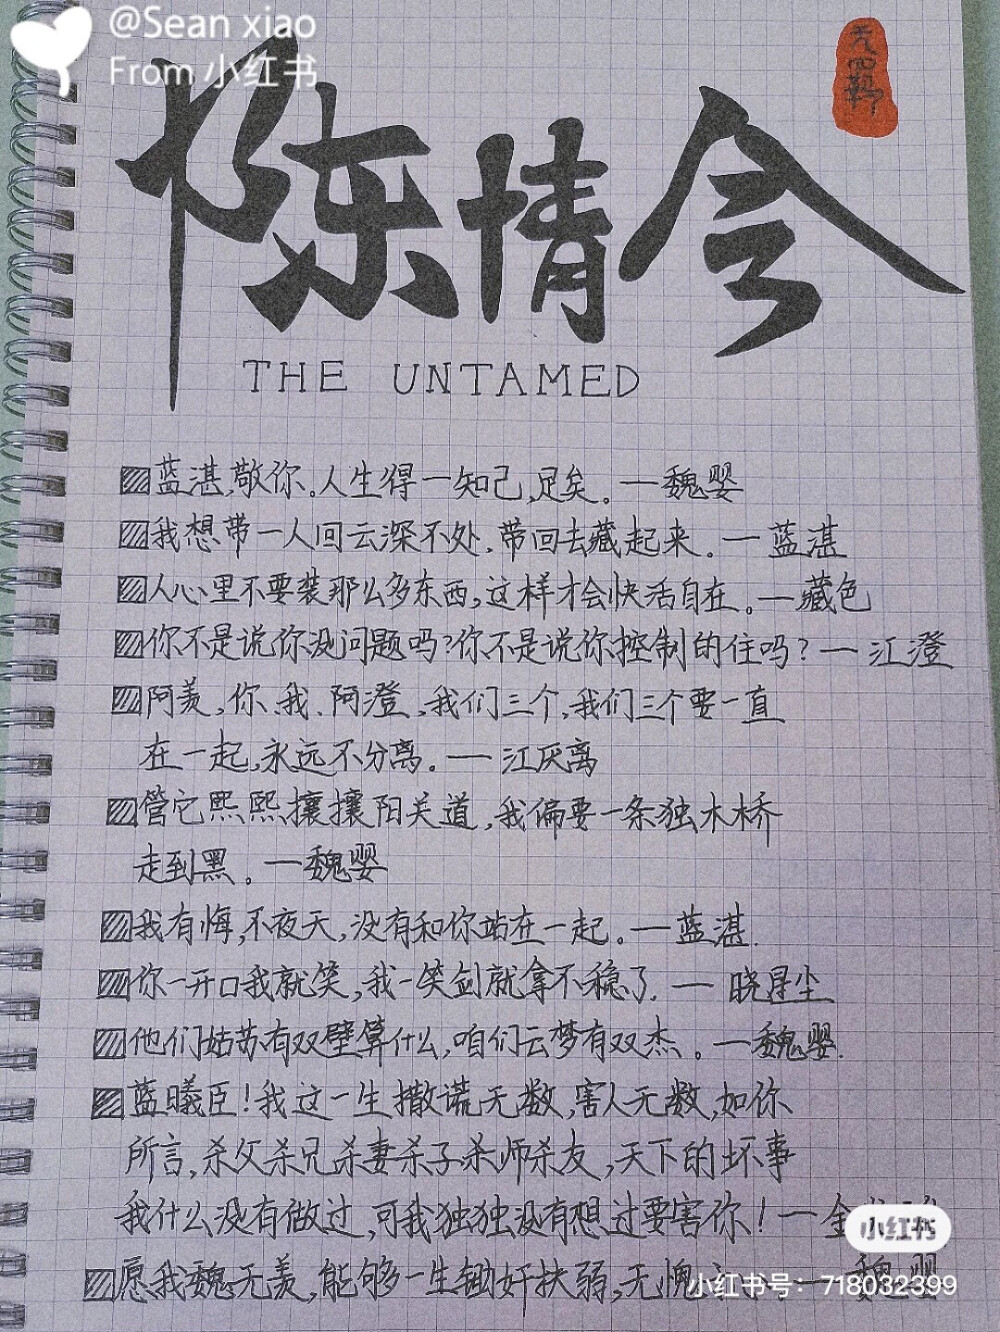 @Sean xiao
From 小红书
陈情令
THE UNTAMED
蓝湛,敬你。人生得一知己,足矣。—魏婴
我想带一人回云深不处,带回去藏起来。—蓝湛
人心里不要装那么多东西,这样才会快活自在。—藏色
你不是说你没问题吗?你不是说你控制的住吗?—江澄
阿羡,你、我、阿澄,我们三个,我们三个要一直
在一起,永远不分离。—江厌离
管它熙熙攘攘阳关道,我偏要一条独木桥
走到黑。—魏婴
我有悔,不夜天,没有和你站在一起。—蓝湛.
你一开口我就笑,我一笑剑就拿不稳了.—晓星尘
他们姑苏有双壁算什么,咱们云梦有双杰。—魏婴.
蓝曦臣!我这一生撒谎无数,害人无数,如你
所言,杀父杀兄杀妻杀子杀师杀友,天下的坏事
我什么没有做过,可我独独没有想过要害你!—金
小红书
愿我魏无羡,能够一生锄奸扶弱,无愧
魏婴
小红书号:718032399